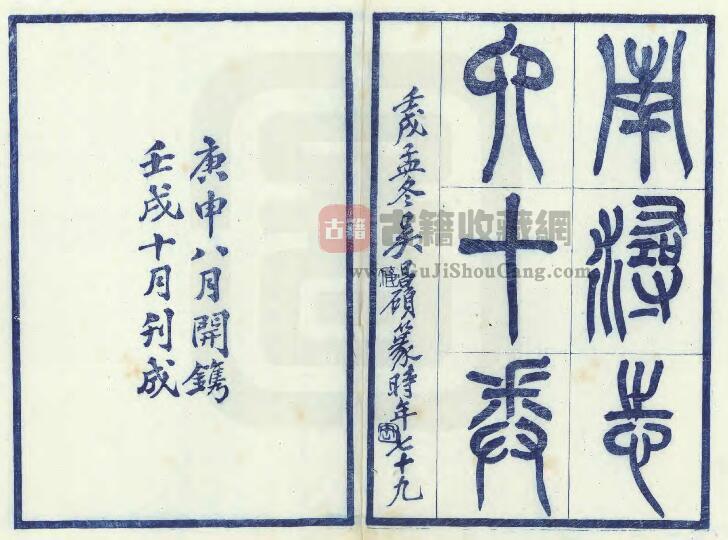 南潯志
六十卷
壬戌孟冬吳昌碩篆時年七十九
庚申八月開鐫
壬戌十月刊成
古籍
古籍收藏網
www.GuJiShouCang.com